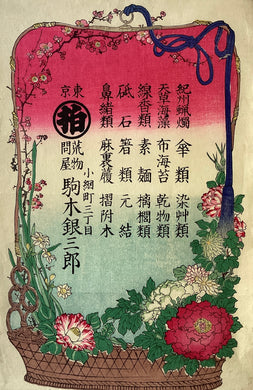 紀州蝋燭 傘類 染艸類
天草海藻 布海苔 乾物類
線香類 素麺 棕櫚類
砥石 箸類 元結
鼻緒類 麻裏履 摺附木
東京 荒物問屋
小網町三丁目
駒木銀三郎